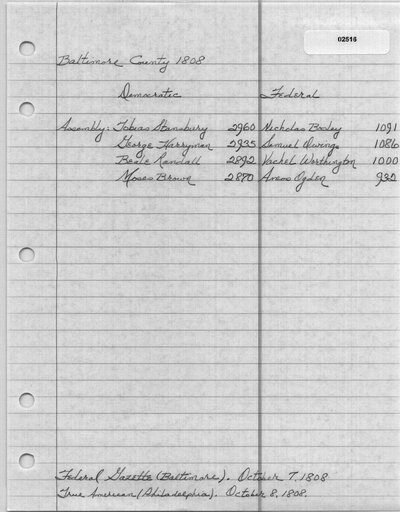 02515
Baltimore County 1808
Democratic Federal
Assembly: Tobias Stansbury 2960 Nicholas Bosley 1091
George Harryman 2935 Samuel Owings 1086
Beale Randall 2892 Vachel Worthington 1000
Moses Brown 2880 Amos Ogden 932
Federal Gazette (Baltimore). October 7, 1808
True American (Philadelphia). October 8, 1808.